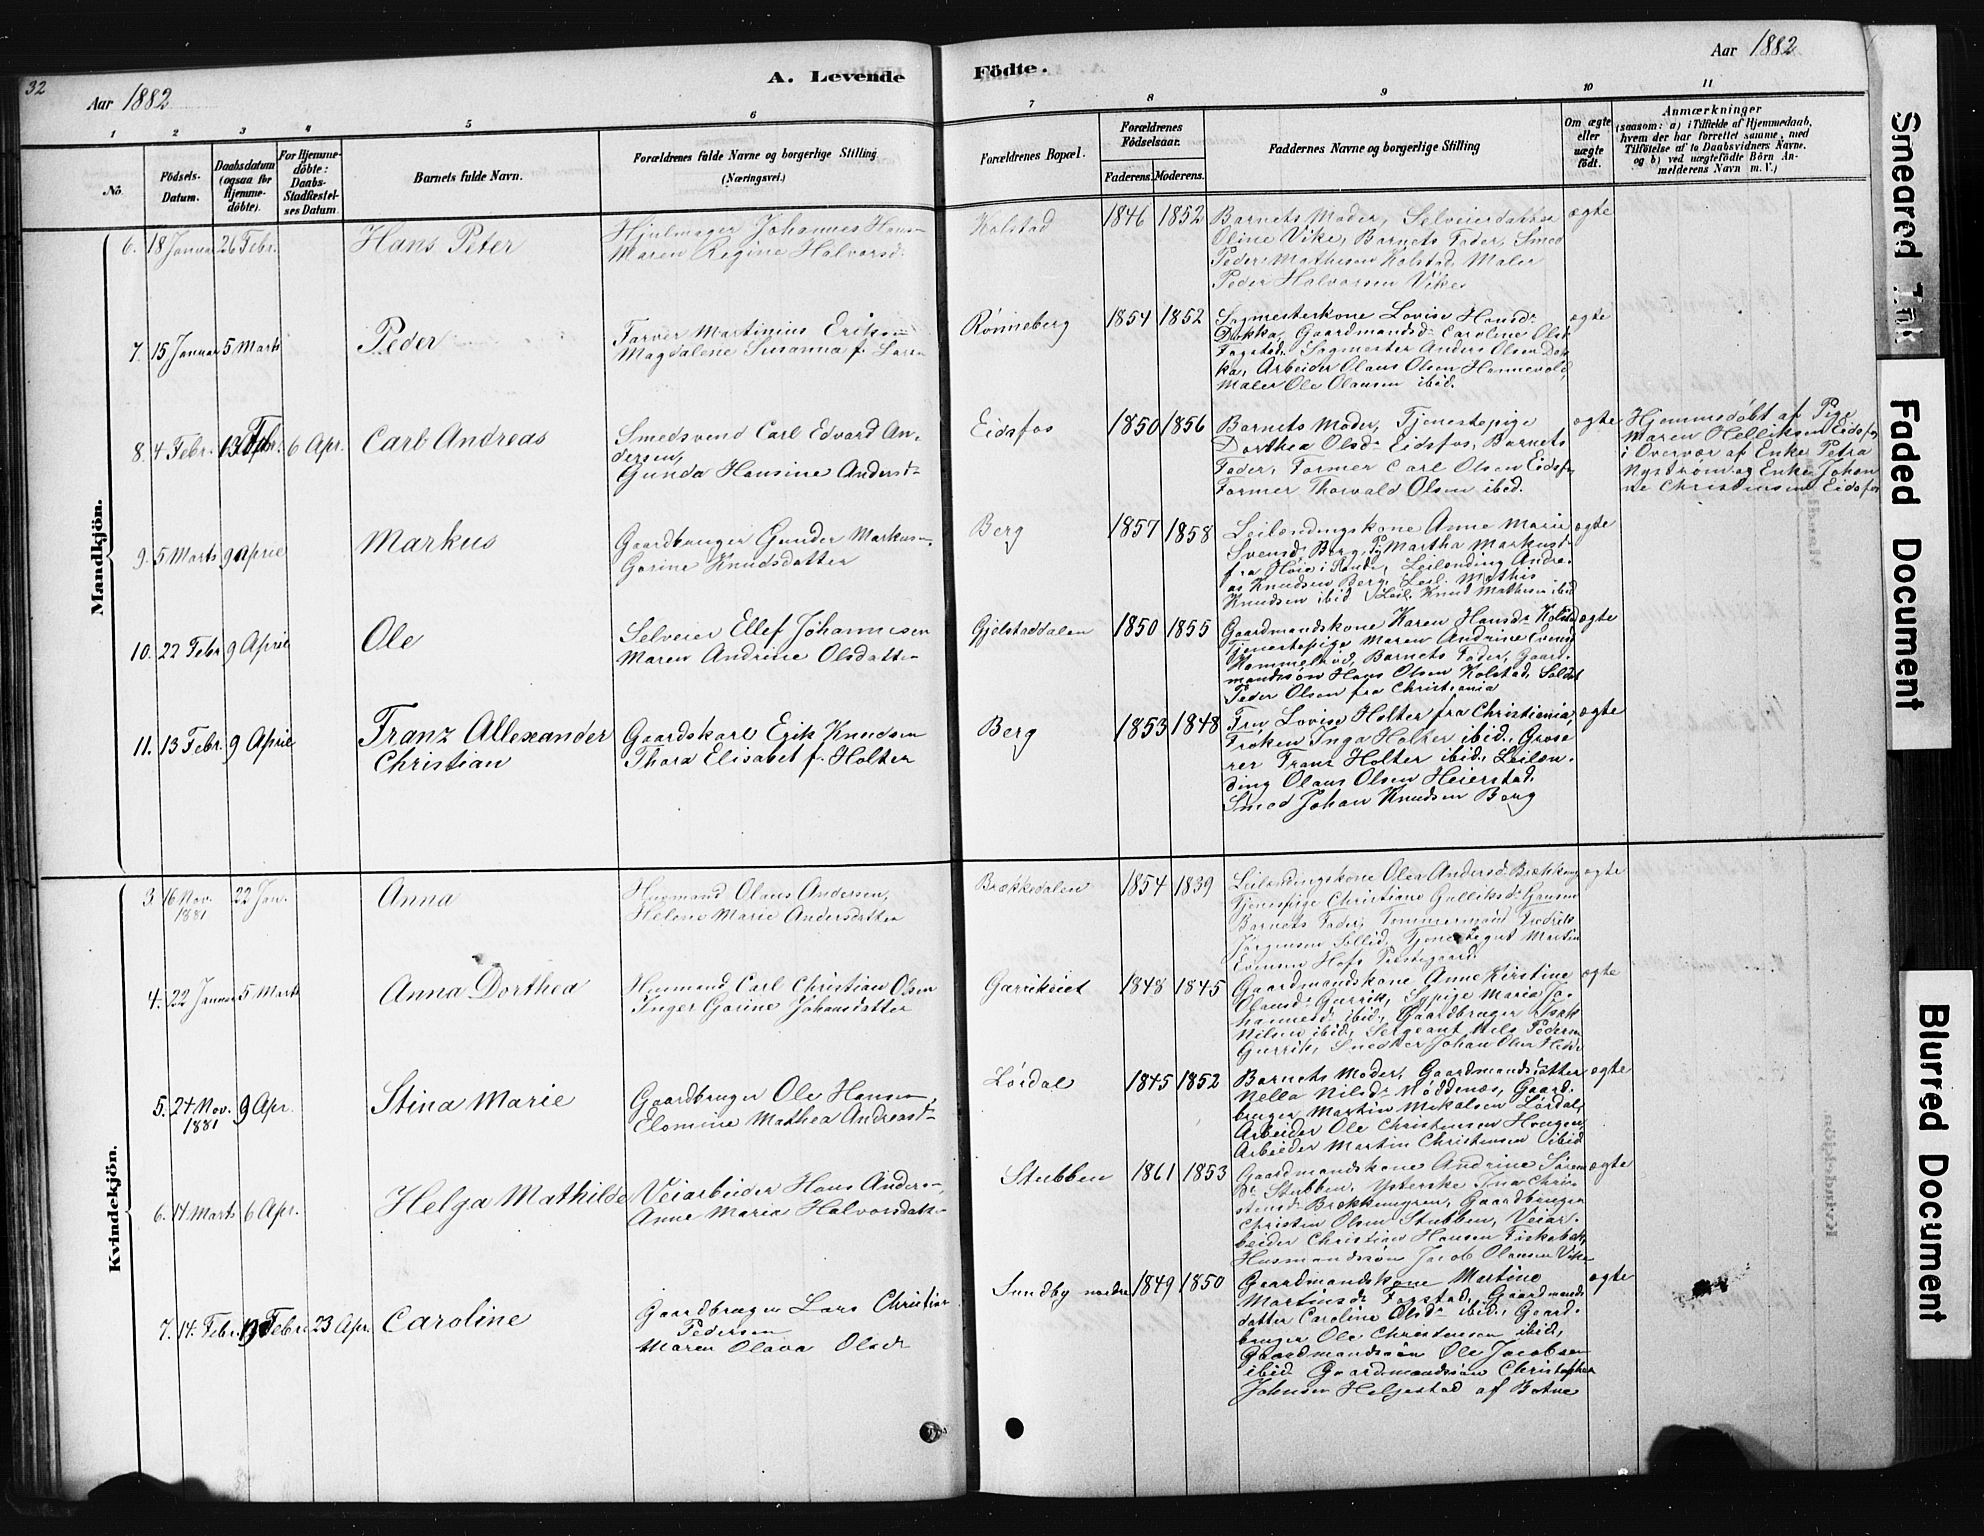 32
Aar 1882
A. Levende
Födte.
Aar 1882
1 2 3 4 5 6 7 8 9 10 11
No.
Födsels-Datum.
Daabsdatum (ogsaa for Hjemme-döbte).
For Hjemme-döbte: Daabs-Stadfæstel-ses Datum
Barnets fulde Navn.
Forældrenes fulde Navne og borgerlige Stilling
(Næringsvei.)
Forældrenes Bopæl.
Forældrenes Födselsaar.
Faderens. Moderens.
Faddernes Navne og borgerlige Stilling
Om ægte eller uægte födt.
Anmærkninger
(saasom: a) i Tilfælde af Hjemmedaab,
hvem der har forrettet samme, med
Tilföielse af to Daabsvidners Navne,
og b) ved uægtefödte Börn An-
melderens Navn m. V.)
Mandkjön.
6. 18 Januar 26 Febr. Hans Peter
Hjulmager Johannes Hans-
Maren Regine Halvorsd.
Kolstad 1846 1852
Barnets Moder, Selveierdatter
Oline Vike, Barnets Fader, Smed
Peder Mathisen Kolstad, Maler
Peder Halvorsen Vike
ægte
7. 15 Januar 5 Marts Peder
Farver Martinius Eriksen
Magdalene Susanna f. Lars
Rønneberg 1854 1852
Sagmesterkone Lovise Hansd.
Dokka, Gaardmandsd. Caroline Olsd.
Fagstad, Sagmester Anders Olsen Dok
ka, Arbeider Olaus Olsen Hannevold,
Maler Ole Olausen ibid.
ægte
8. 4 Febr. 13 Febr. 6 Apr. Carl Andreas
Smedsvend Carl Edvard An-
dersen,
Gunda Hansine Andersd.
Eidsfos 1850 1856
Barnets Moder, Tjenestepige
Dorthea Olsd. Eidsfos, Barnets
Fader, Former Carl Olsen Eidsfos
Former Thorvald Olsen ibid.
ægte
Hjemmedøbt af Pige
Maren Helliksen Eidsfos
i Overvær af Enke Petra
Nystrøm og Enke Johan
ne Christensen Eidsfos
9. 5 Marts 9 April Markus
Gaardbruger Gunder Markus-
Gorine Knudsdatter
Berg 1857 1858
Leilendingskone Anne Marie
Svensd. Berg, Martha Markusd.
fra Høie i Sande, Leilending Andre-
as Knudsen Berg, Leil. Mathis
Knudsen ibid Leil. Knud Mathisen ibid
ægte
10. 22 Febr 9 April Ole
Selveier Ellef Johannesen
Maren Andrine Olsdatter
Gjelstaddalen 1850 1855
Gaardmandskone Karen Hansd. Kolstad
Tjenestepige Maren Andrine Evensd.
Hammelrød, Barnets Fader, Gaard-
mandssøn Hans Olsen Kolstad, Soldat
Peder Olsen fra Christiania
ægte
11. 13 Febr. 9 April Franz Allexander
Christian
Gaardskarl Erik Knudsen
Thora Elisabet f. Holter
Berg 1853 1848
Fru Lovise Holter fra Christiania,
Frøken Inga Holter ibid. Grose
rer Franz Holter ibid. Leilen-
ding Olaus Olsen Heierstad.
Smed Johan Knudsen Berg
ægte
Kvindekjön.
3. 16 Nov. 1881 22 Jan. Anna
Husmand Olaus Andersen,
Helene Marie Andersdatter
Brækkedalen 1854 1839
Leilendingskone Olea Andersd.
Tjenestpige Christiane Gulliksd.
Barnets Fader, Tømmermand Fredrik
Jørgensen Tjenestegut Martin
Evensen Hofs Præstegaard
ægte
4. 22 Januar 5 Marts Anna Dorthea
Husmand Carl Christian Olsen
Inger Gorine Johansdatter
1848 1845
Gaardmandskone Anne Kirstine
Olausd. Gurrik, Sypige Maria Jo-
hannesd. ibid., Gaardbruger Isak
Nilsen ibid, Sergeant Nils Pedersen
Gurrik, Snedker Johan Olsen
ægte
5. 24 Nov. 1881 9 Apr. Stina Marie
Gaardbruger Ole Hansen,
Elomine Mathea Andreasd.
Lørdal 1845 1852
Barnets Moder, Gaardmandsdatter
Nella Nilsd. Nøddenæs, Gaard-
bruger Martin Mikalsen Lørdal,
Arbeider Ole Christensen Hougen,
Arbeider Martin Christensen ibid
ægte
6. 14 Marts 6 Apr. Helga Mathilde
Veiarbeider Hans Anders-,
Anne Maria Halvorsdatter
Stubben 1861 1853
Gaardmandskone Andrine Søren
Dr. Stubben, Ysterske Ina Chris
stensd. Brekkemyren, Gaardbruger
Christen Olsen Stubben, Veiar-
beider Christian Hansen Fiskebæk,
Husmandssøn Jacob Olausen Vike
ægte
7. 14 Febr. 13 Febr. 23 Apr. Caroline
Gaardbruger Lars Christian
Pedersen
Maren Olava Olsdr
Sundby nordre 1849 1850
Gaardmandskone Martine
Martinsd. Fagstad, Gaardmands
datter Caroline Olsd. ibid., Gaard-
bruger Ole Christensen ibid,
Gaardmandssøn Ole Jacobsen
ibid Gaardmandssøn Christopher
Johnsen Helgestad af Botne
ægte
Smeared Ink
Faded Document
Blurred Document